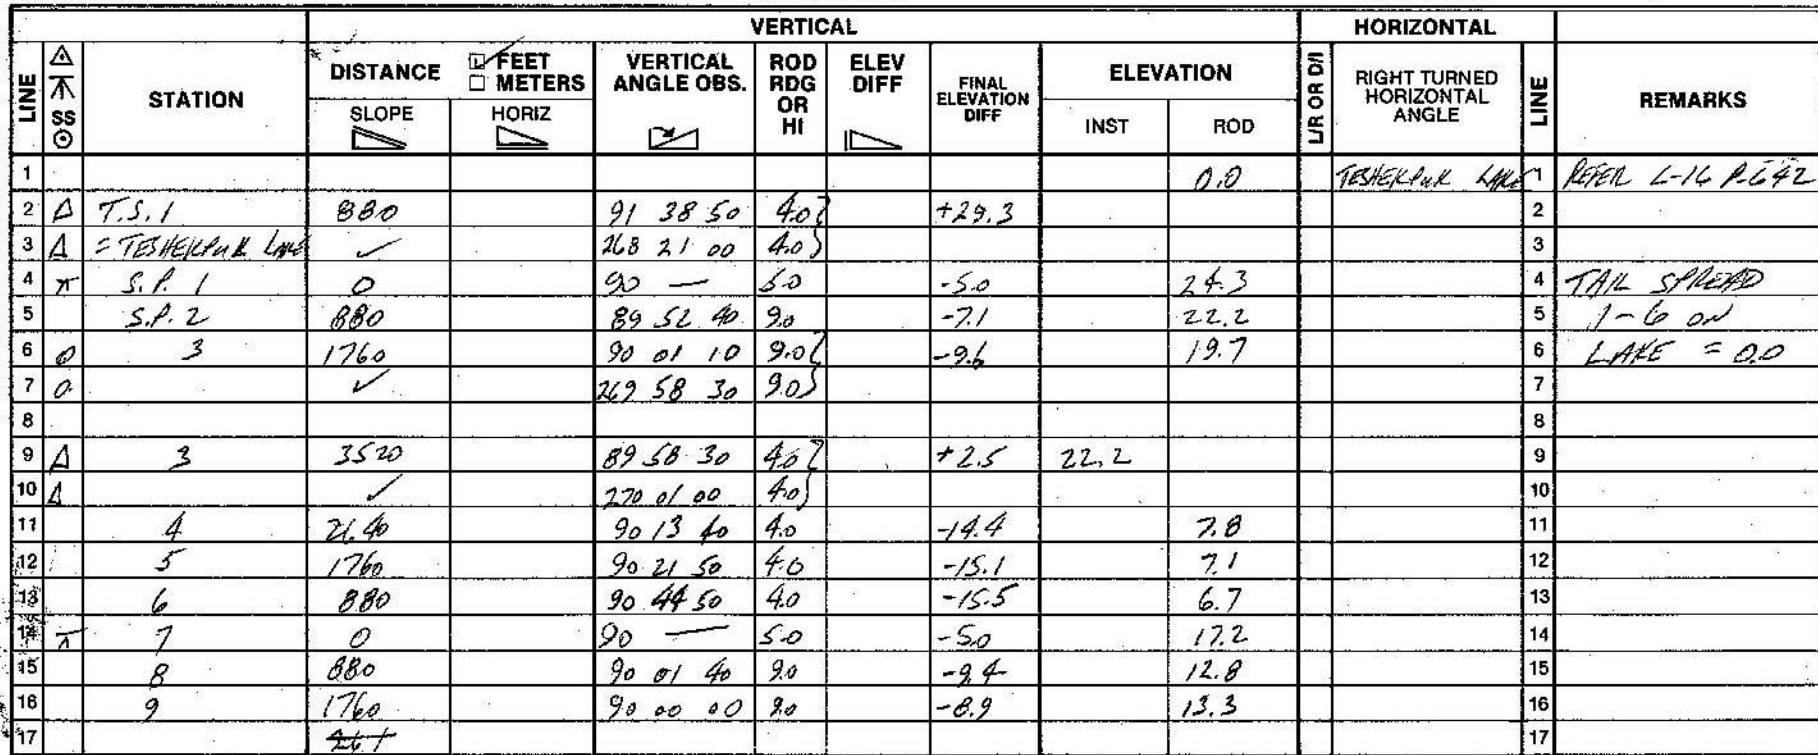 VERTICAL HORIZONTAL
LINE SS STATION DISTANCE FEET METERS VERTICAL ANGLE OBS. ROD RDG OR HI ELEV DIFF FINAL ELEVATION DIFF ELEVATION L/R OR D/I RIGHT TURNED HORIZONTAL ANGLE LINE REMARKS
SLOPE HORIZ INST ROD
1 0.0 TESHEKPUK LAKE 1 REFER L-16 P-642
2 Δ T.S.1 880 91 38 50 4.0 +29.3 2
3 Δ = TESHEKPUK LAKE ✓ 268 21 00 4.0 3
4 S.P. 1 0 90 — 5.0 -5.0 24.3 4 TAIL SPREAD
5 S.P. 2 880 89 52 40 9.0 -7.1 22.2 5 1-6 ON
6 3 1760 90 01 10 9.0 -9.6 19.7 6 LAKE = 0.0
7 ✓ 269 58 30 9.0 7
8 8
9 Δ 3 3520 89 58 30 4.0 +2.5 22.2 9
10 Δ ✓ 270 01 00 4.0 10
11 4 2640 90 13 40 4.0 -14.4 7.8 11
12 5 1760 90 21 50 4.0 -15.1 7.1 12
13 6 880 90 44 50 4.0 -15.5 6.7 13
14 7 0 90 — 5.0 -5.0 17.2 14
15 8 880 90 01 40 9.0 -9.4 12.8 15
16 9 1760 90 00 00 9.0 -8.9 13.3 16
17 17